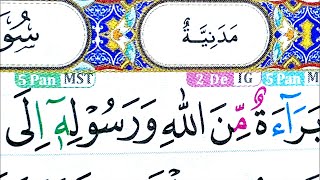 مَدَنِيَّةٌ
سُو
5 Pan MST 2 De IG 5 Pan M
بَرَآءَةٌ مِّنَ اللّٰهِ وَرَسُوْلِهٖۤ اِلَى